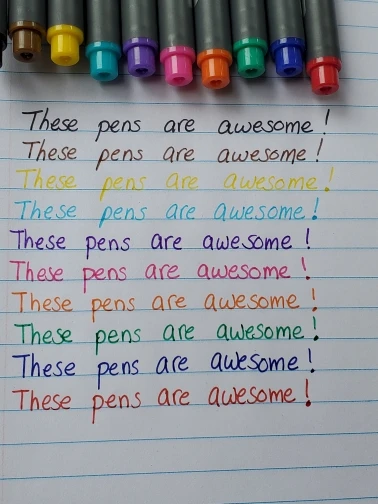 These pens are awesome!
These pens are awesome!
These pens are awesome!
These pens are awesome!
These pens are awesome!
These pens are awesome!
These pens are awesome!
These pens are awesome!
These pens are awesome!
These pens are awesome!